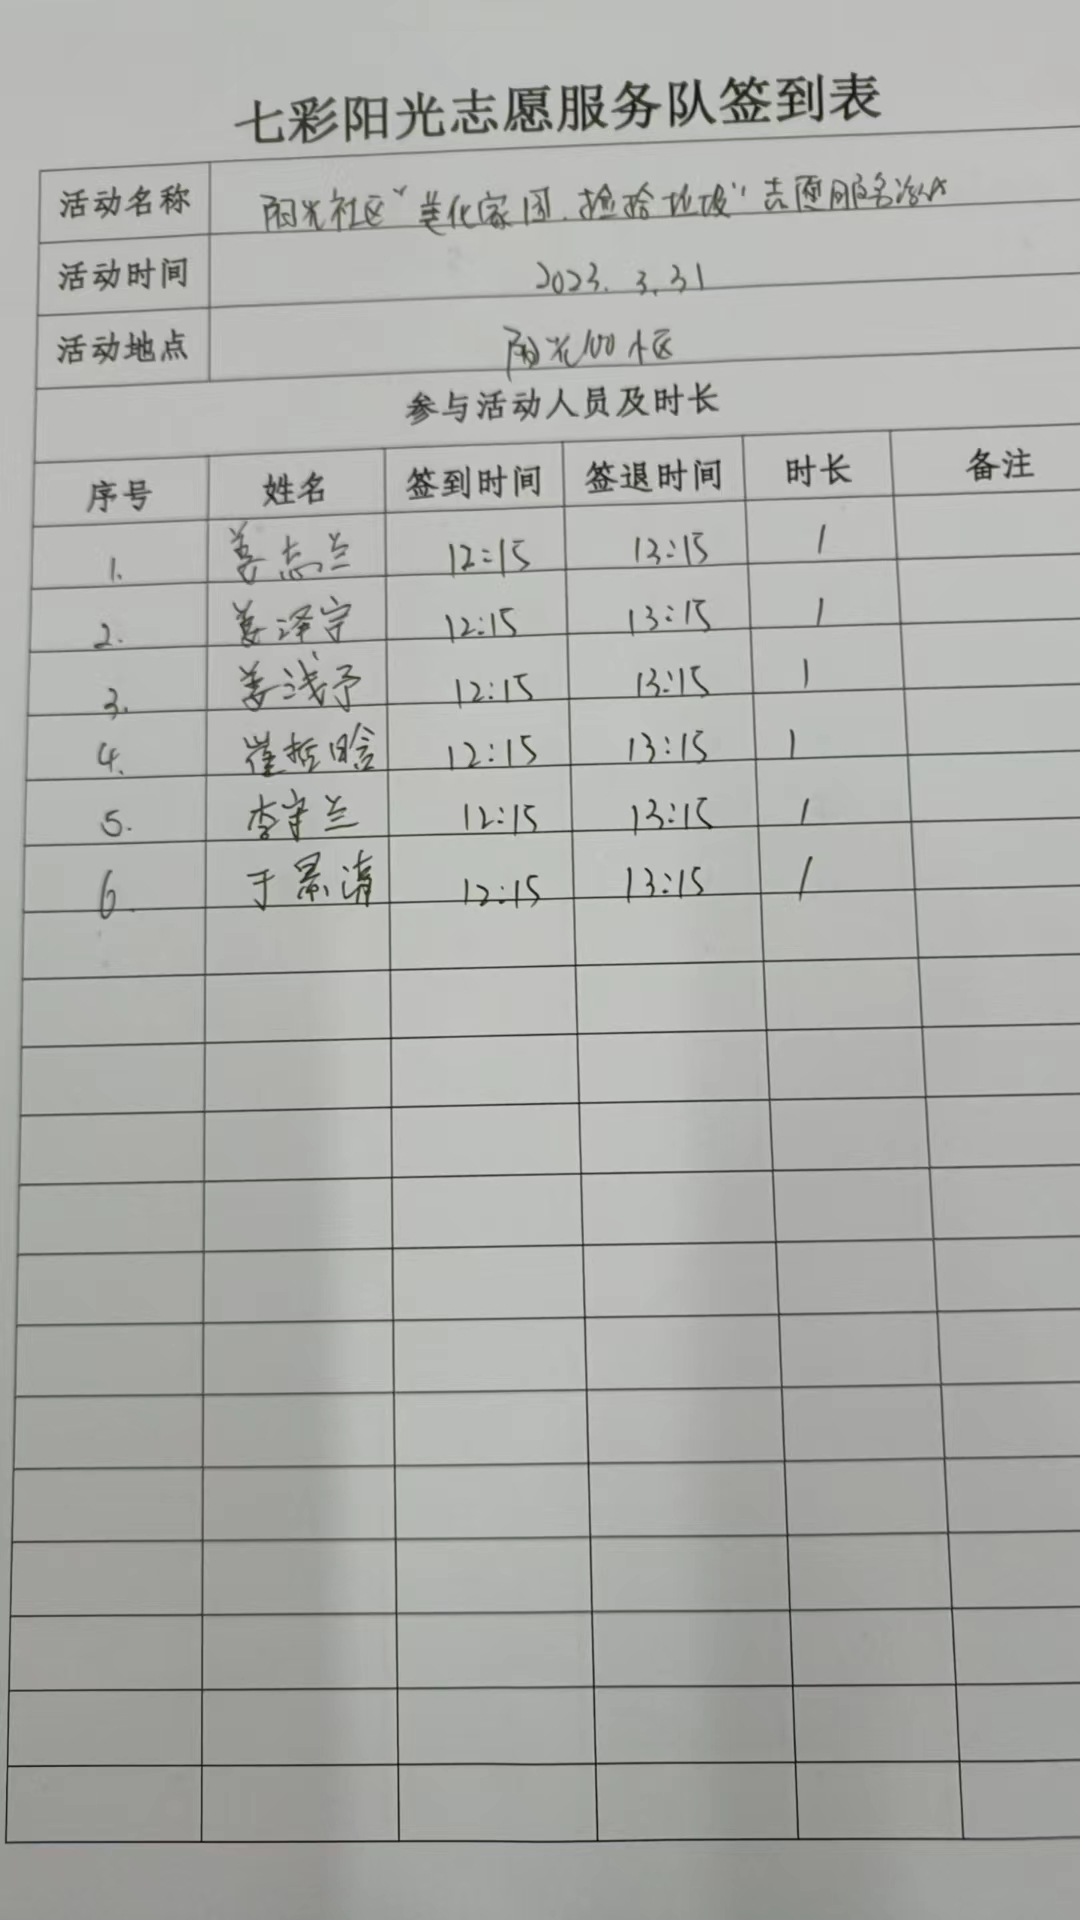 七彩阳光志愿服务队签到表
活动名称 阳光社区“美化家园.捡拾垃圾”志愿服务活动
活动时间 2023.3.31
活动地点 阳光100小区
参与活动人员及时长
序号 姓名 签到时间 签退时间 时长 备注
1. 姜志兰 12:15 13:15 1
2. 姜泽宇 12:15 13:15 1
3. 姜浅予 12:15 13:15 1
4. 崔哲晗 12:15 13:15 1
5. 李守兰 12:15 13:15 1
6. 于景清 12:15 13:15 1